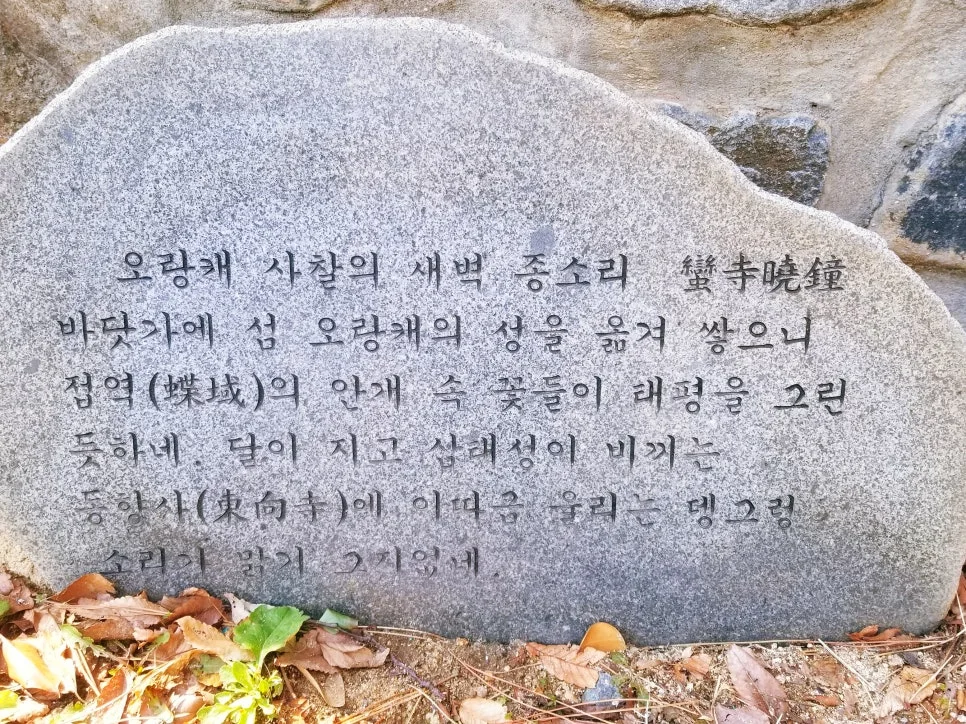 오랑캐 사찰의 새벽 종소리 蠻寺曉鐘
바닷가에 섬 오랑캐의 성을 옮겨 쌓으니
접역(蝶域)의 안개 속 꽃들이 태평을 그린
듯하네. 달이 지고 삼태성이 비끼는
동향사(東向寺)에 이따금 울리는 뎅그렁
소리가 맑기 그지없네.